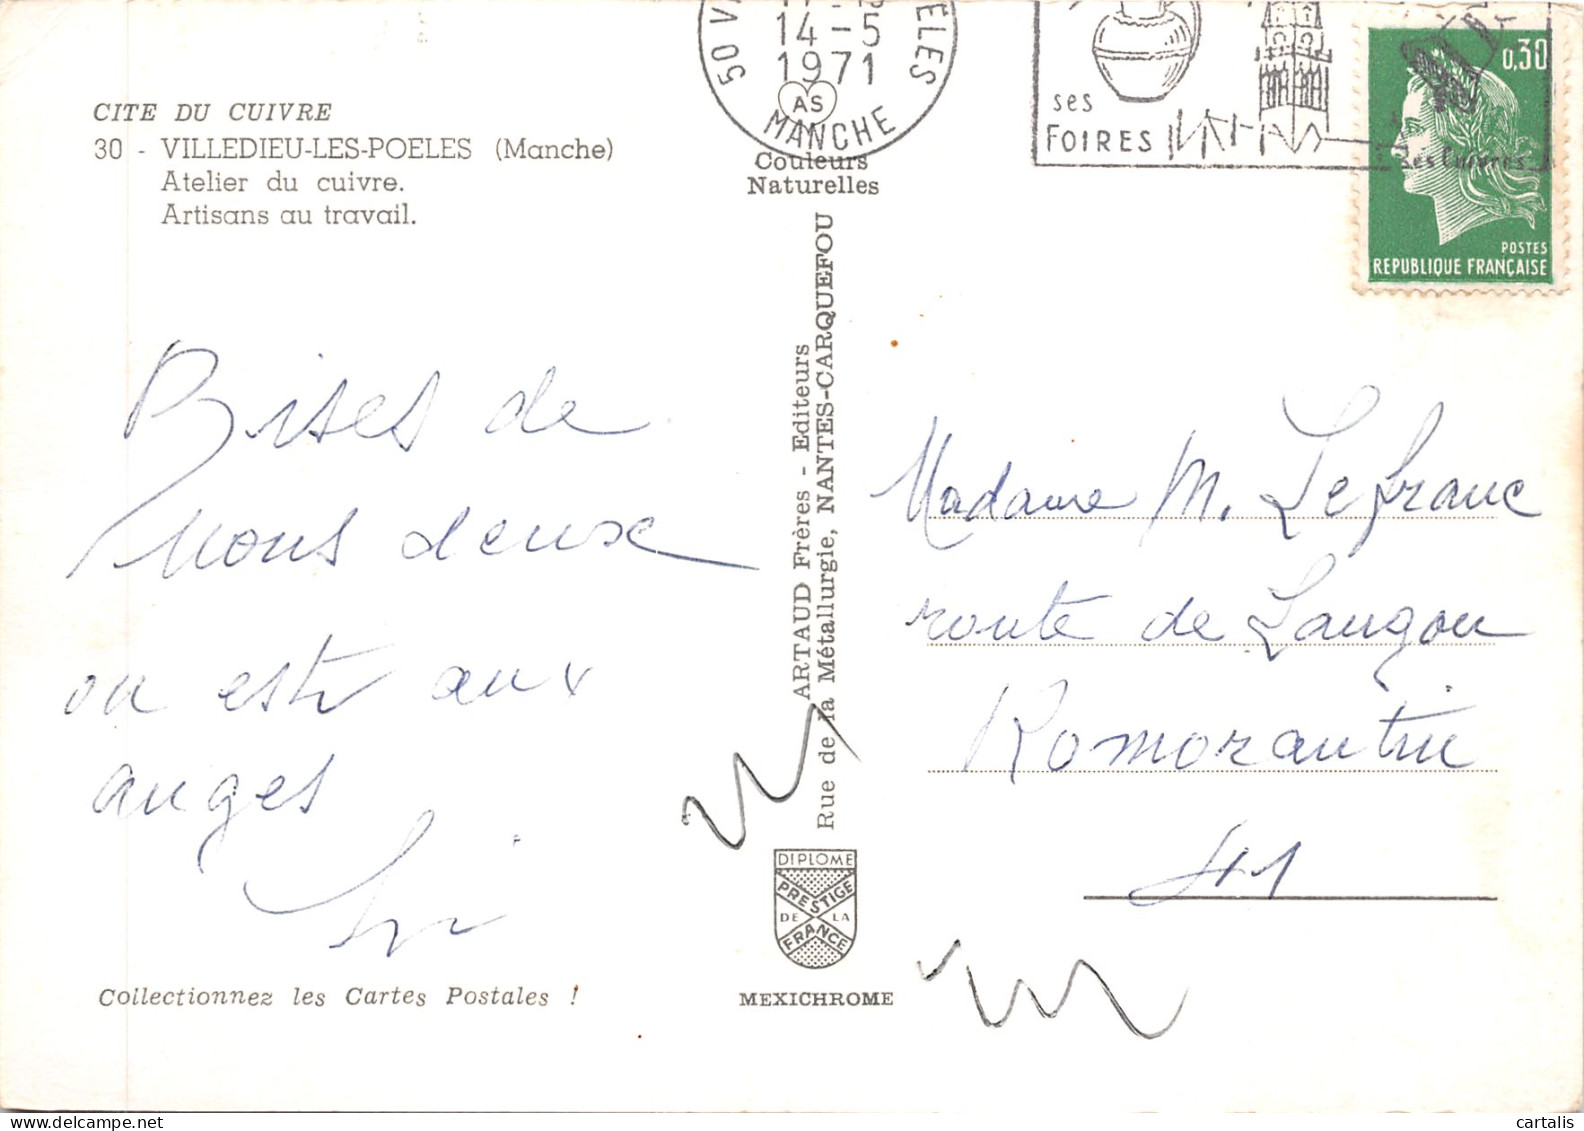 CITE DU CUIVRE
30 - VILLEDIEU-LES-POELES (Manche)
Atelier du cuivre.
Artisans au travail.
Bises de
nous deux
on est aux
anges
Collectionnez les Cartes Postales !
14-5
1971
AS
MANCHE
Couleurs
Naturelles
ARTAUD Frères - Editeurs
Rue de la Métallurgie, NANTES-CARQUEFOU
DIPLOME
PRESTIGE
DE LA
FRANCE
MEXICHROME
ses
FOIRES
ses Cuivres
0,30
POSTES
REPUBLIQUE FRANÇAISE
Madame M. Lefranc
route de Langon
Romorantin
41
cartalis